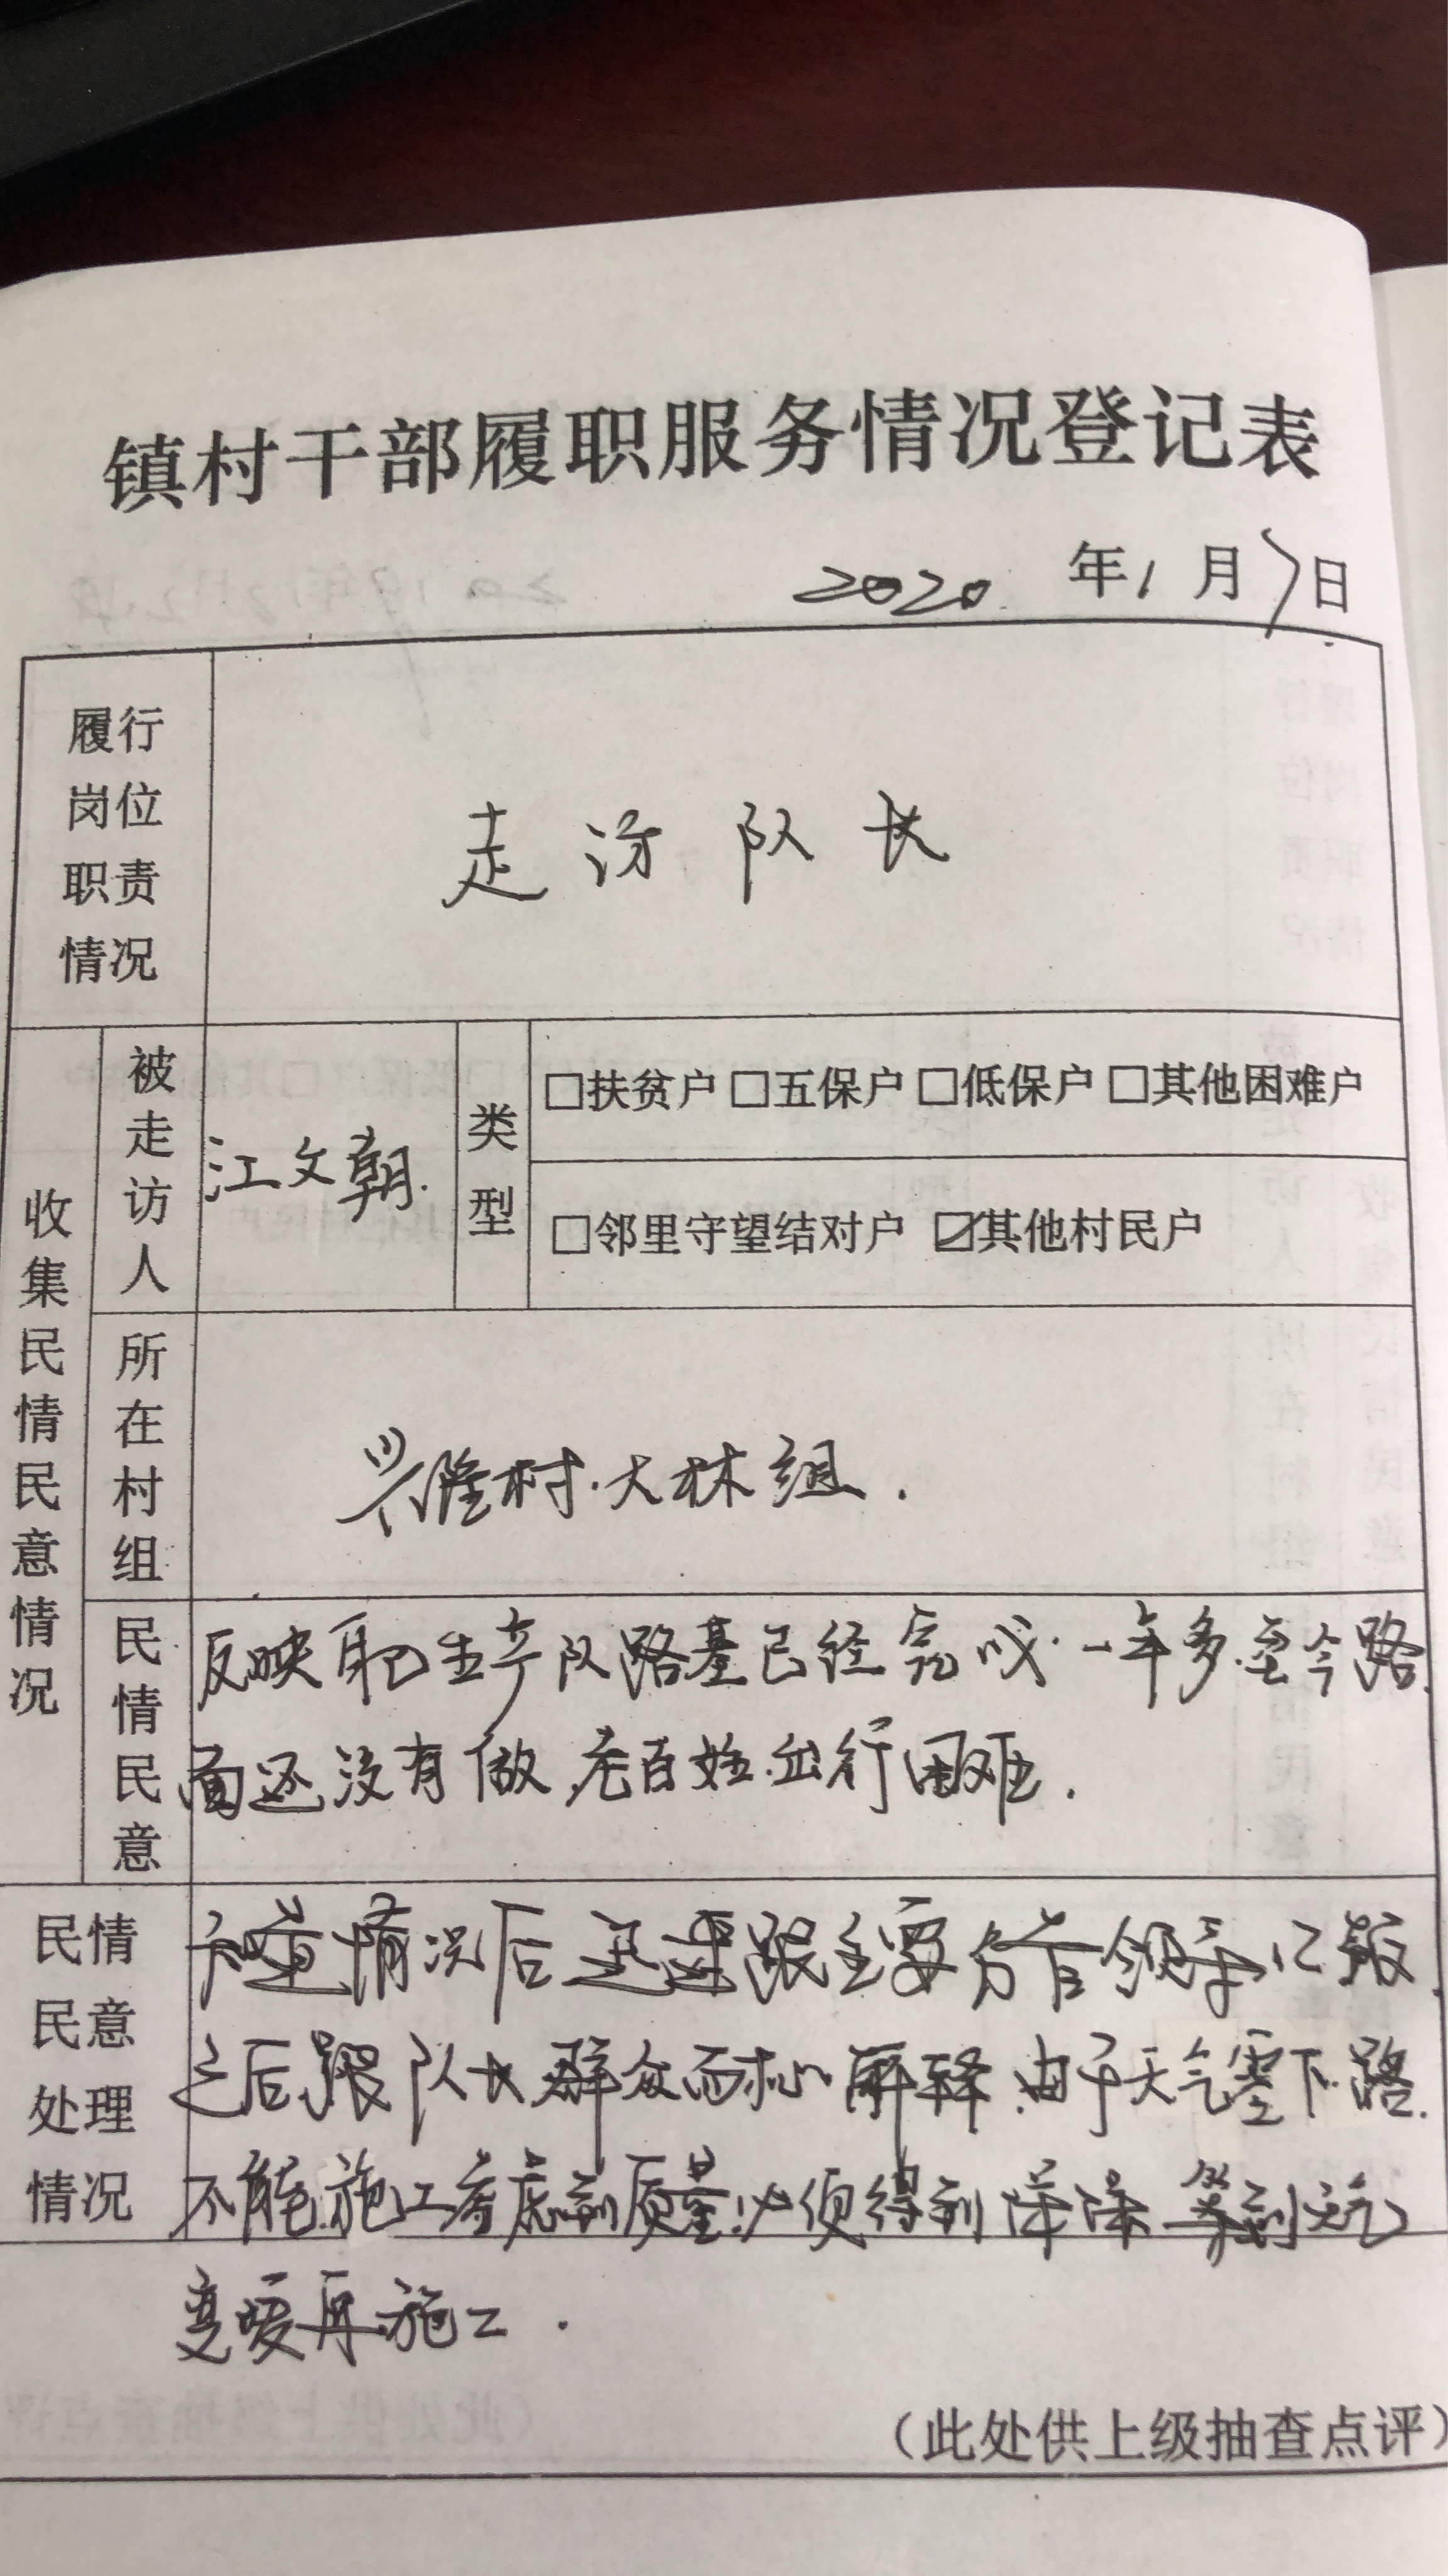 镇村干部履职服务情况登记表
2020 年 1 月 7 日
履行
岗位
职责
情况
走访队长
收集民情民意情况
被走访人
江文朝.
类型
□扶贫户 □五保户 □低保户 □其他困难户
□邻里守望结对户 ☑其他村民户
所在村组
兴隆村.大林组.
民情民意
反映自己生产队路基已经完成.一年多.至今路
面还没有做,老百姓.出行困难.
民情
民意
处理
情况
知道情况后迅速跟主要分管领导汇报,
之后,跟队长,群众而耐心解释.由于天气零下.路.
不能.施工考虑到质量.必须得到 等到天气
变暖再施工.
(此处供上级抽查点评)